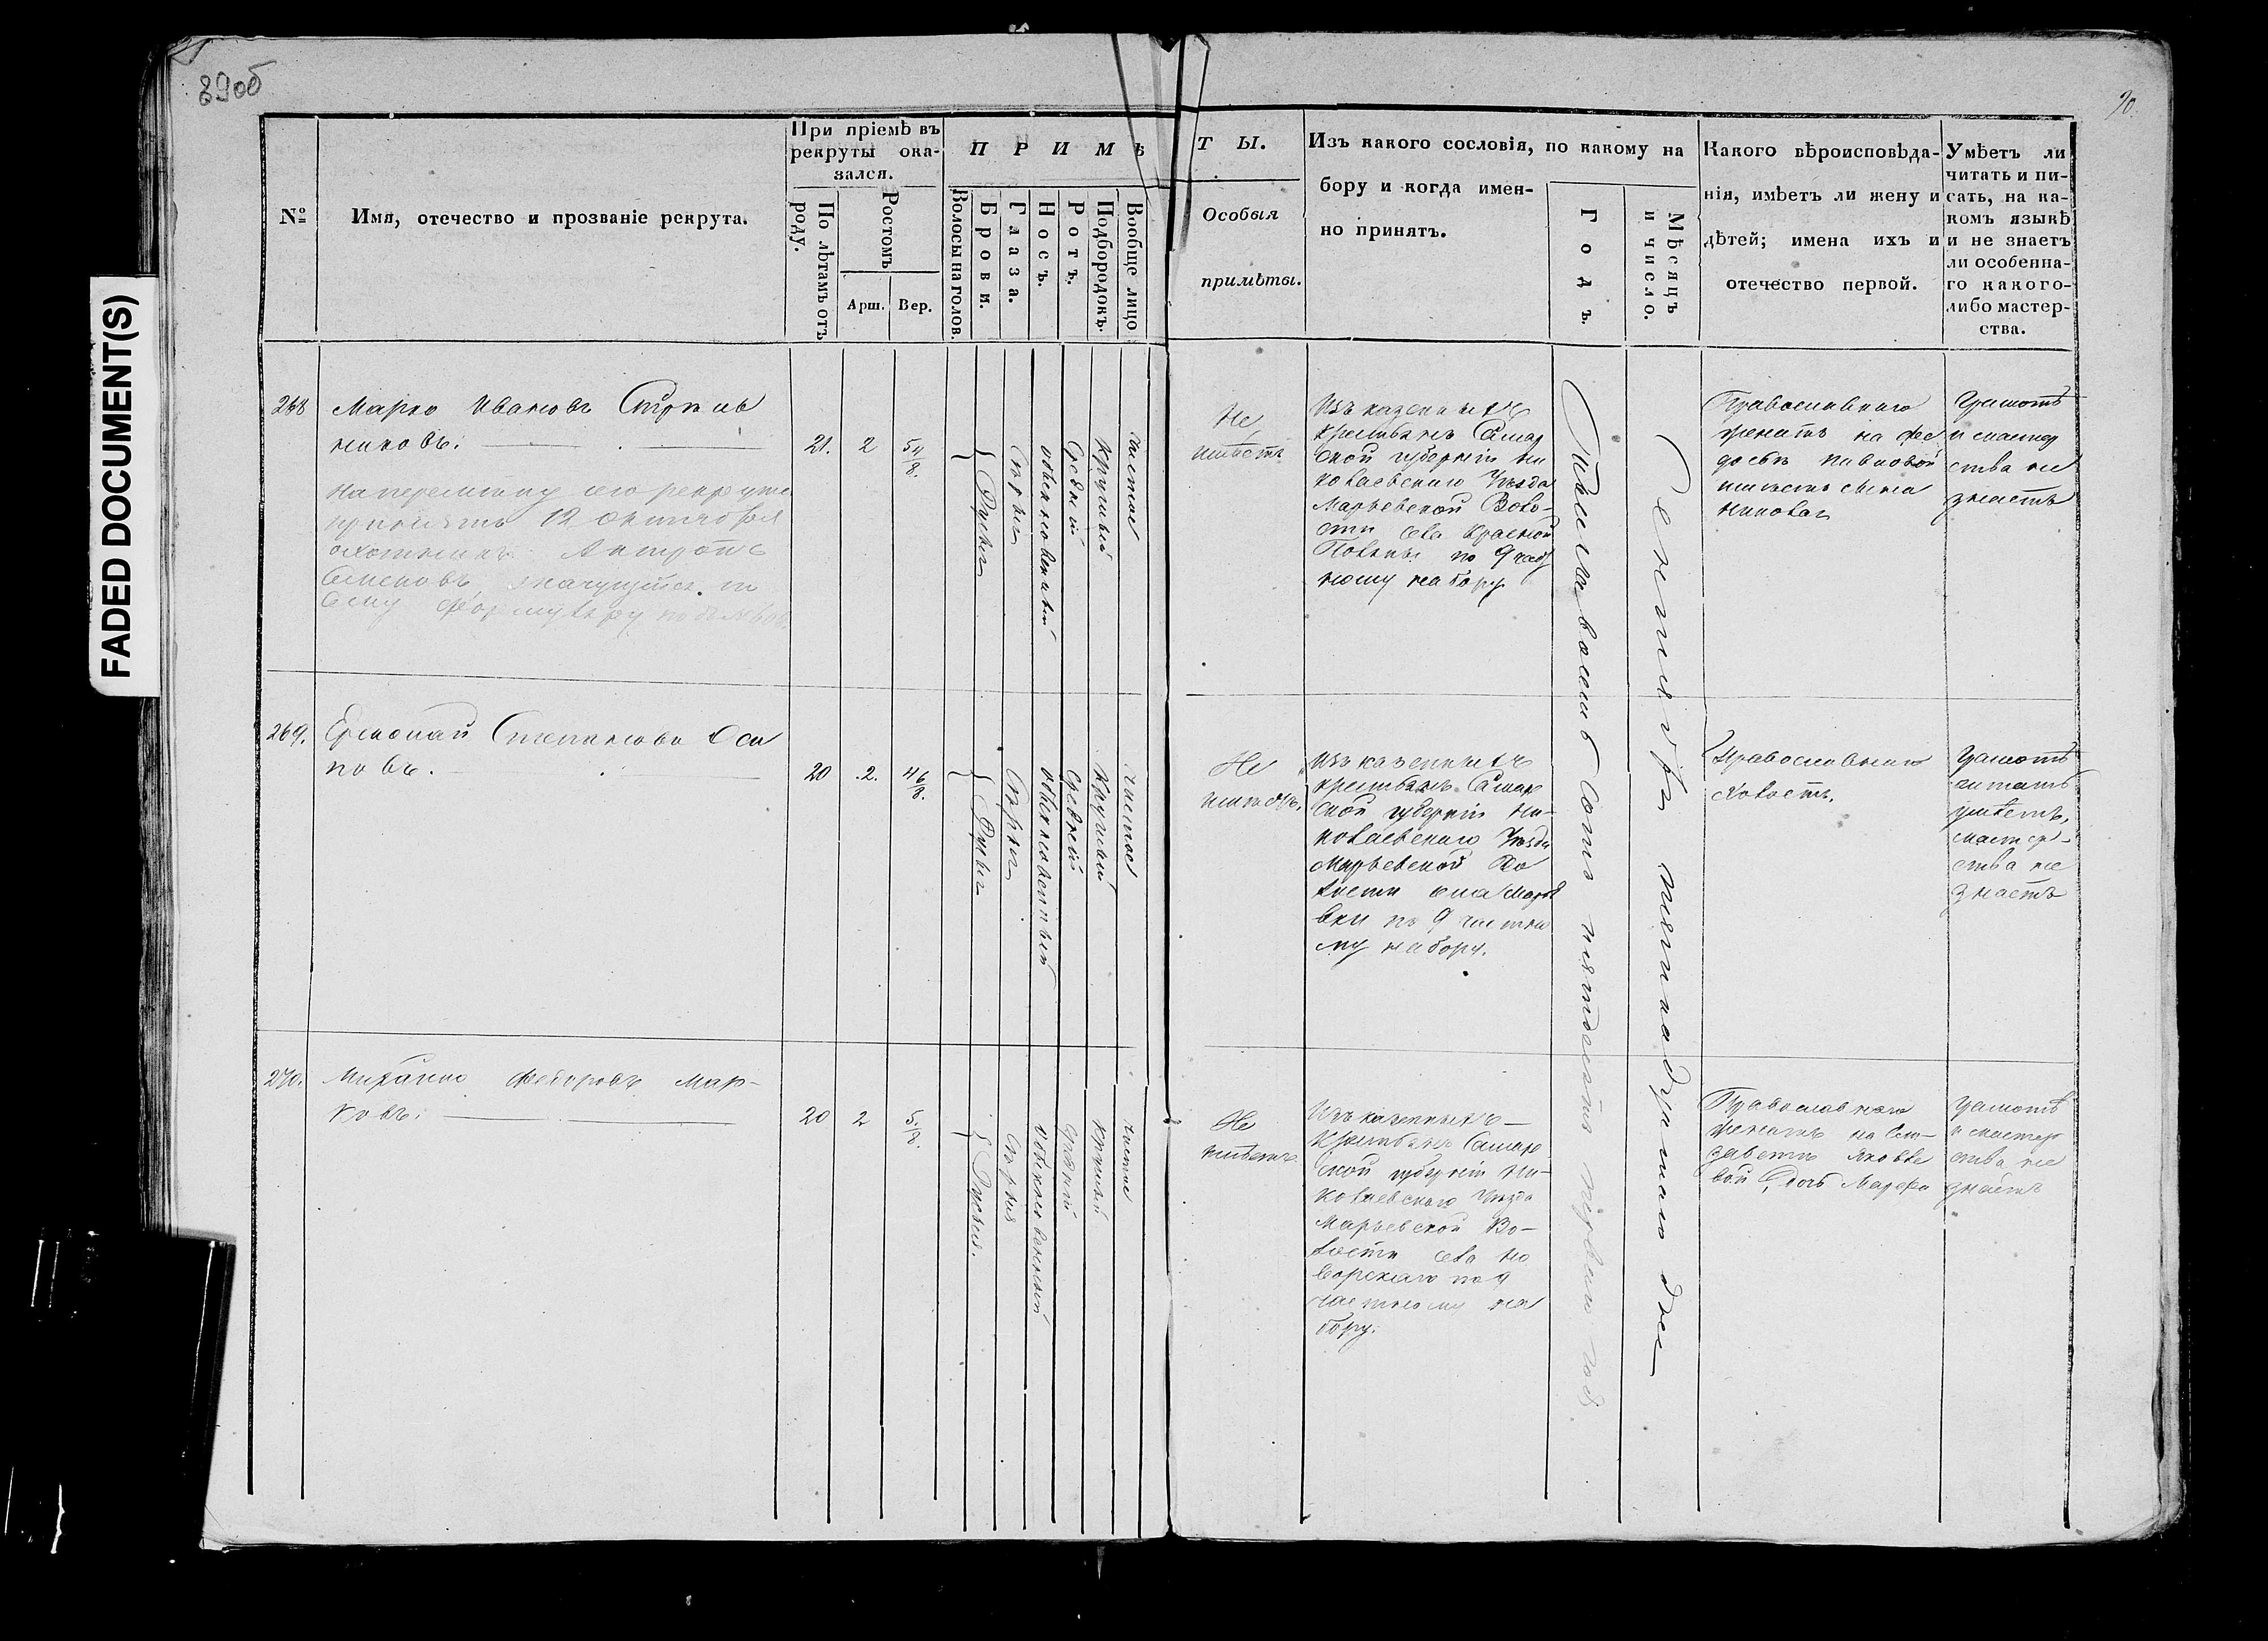 FADED DOCUMENT(S)
89об
90.
№
Имя, отечество и прозваніе рекрута.
При пріемѣ въ
рекруты ока-
зался.
По лѣтамъ отъ
роду.
Ростомъ
Арш.
Вер.
ПРИМѢ
Волосы на голов.
Брови.
Глаза.
Носъ.
Ротъ.
Подбородокъ.
Вообще лицо
ТЫ.
Особыя
примѣты.
Изъ какого сословія, по какому на
бору и когда имен-
но принятъ.
Годъ.
Мѣсяцъ
и число.
Какого вѣроисповѣда-
нія, имѣетъ ли жену и
дѣтей; имена ихъ и
отечество первой.
Умѣетъ ли
читать и пи-
сать, на ка-
комъ языкѣ
и не знаетъ
ли особенна-
го какого-
либо мастер-
ства.
268
Марко Ивановъ
никовъ.
21.
2
5 4/8.
Русыя
Сѣрыя
обыкновенный
Средній
Круглый
Чистое
12 октября
охотникъ
Семеновъ
Не
имѣетъ
Изъ казенныхъ
крестьянъ Самар
ской губерніи Ни
колаевскаго Уѣзда
Марьевской Воло-
сти села Красной
Поляны по 9 част
ному набору
Тысяча восемь сотъ пятьдесятъ первый годъ
Сентября тринадцатаго дня
Православнаго
женатъ на Фе
досьѣ
имѣетъ сына
Грамотѣ
и мастер
ства не
знаетъ
269.
Степановъ Оси
повъ.
20
2.
4 6/8.
Русыя
Сѣрыя
обыкновенный
Средній
Круглый
Чистое
Не
имѣетъ.
Изъ казенныхъ
крестьянъ Самар
ской губерніи Ни-
колаевскаго Уѣзда
Марьевской Во
лости села Марь
евки по 9 частно
му набору.
Православнаго
холостъ.
Грамотѣ
читать
умѣетъ,
мастер-
ства не
знаетъ
270.
Михайло Федоровъ Мар-
ковъ.
20
2
5./8.
Русыя.
Сѣрыя
обыкновенный
Средній
Круглый
Чистое
Не
имѣетъ
Изъ казенныхъ
Крестьянъ Самар
ской губерніи Ни-
колаевскаго Уѣзда
Марьевской Во-
лости села
по 9
частному на
бору.
Православнаго
женатъ на Ели-
заветѣ Яковле
вой Дочь Марфа
Грамотѣ
и мастер
ства не
знаетъ